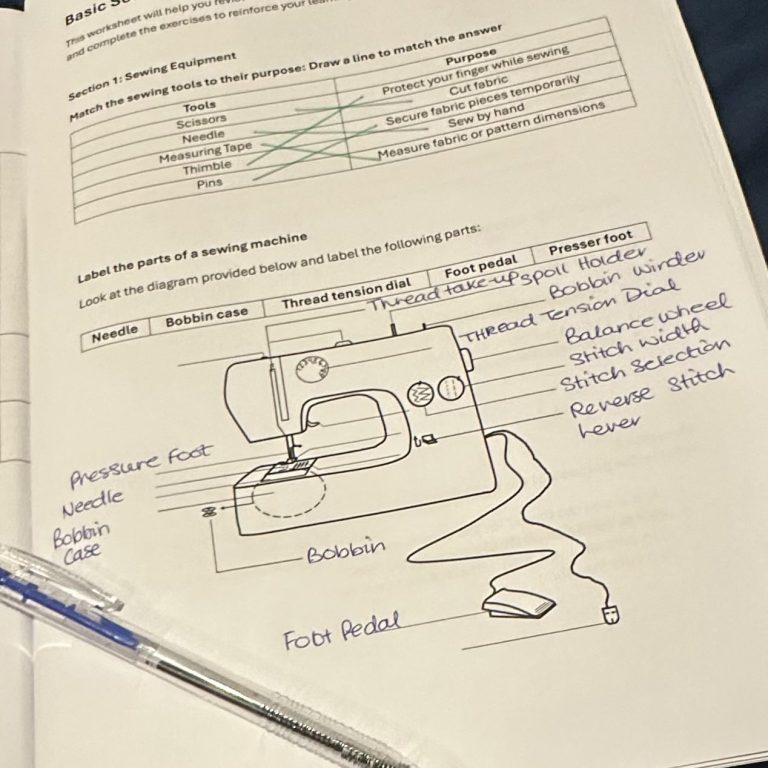 Basic
This worksheet will help you
and complete the exercises to reinforce your
Section 1: Sewing Equipment
Match the sewing tools to their purpose: Draw a line to match the answer
Tools Purpose
Scissors Protect your finger while sewing
Needle Cut fabric
Measuring Tape Secure fabric pieces temporarily
Thimble Sew by hand
Pins Measure fabric or pattern dimensions
Label the parts of a sewing machine
Look at the diagram provided below and label the following parts:
Needle Bobbin case Thread tension dial Foot pedal Presser foot
Thread take-up spoll Holder
Bobbin Winder
THREAD Tension Dial
Balance wheel
Stitch width
Stitch Selection
Reverse Stitch
Lever
Pressure Foot
Needle
Bobbin
Case
Bobbin
Foot Pedal